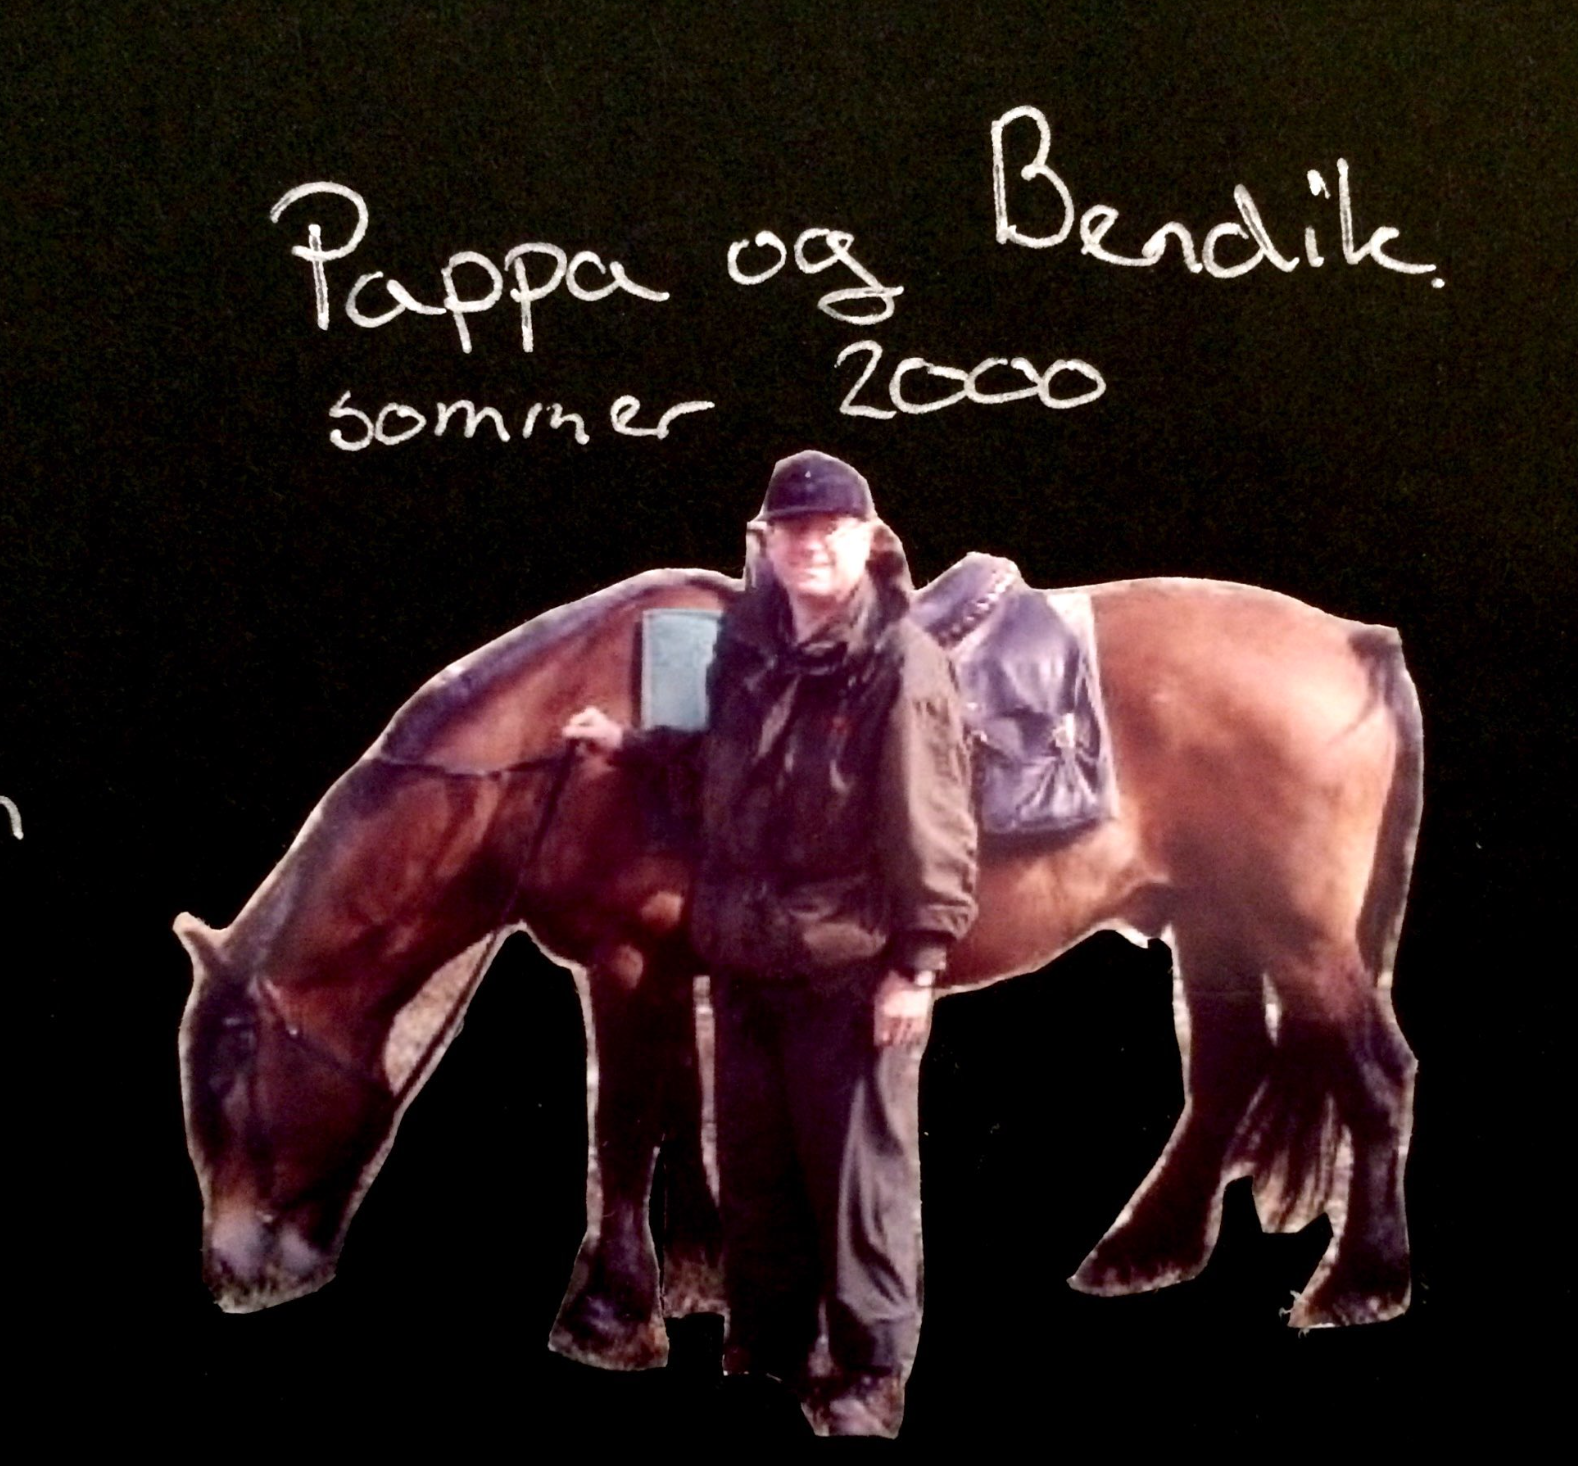 Pappa og Bendik.
sommer 2000